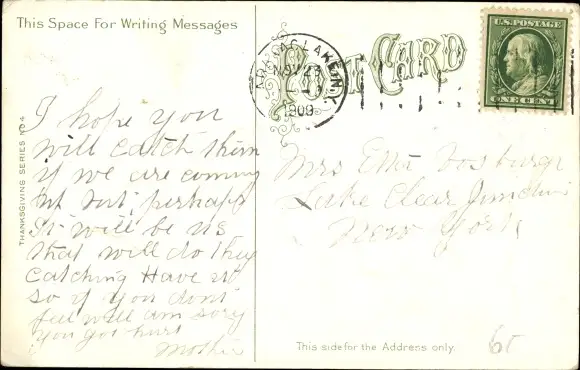 This Space For Writing Messages
POST CARD
SARANAC LAKE, N.Y.
NOV 23
1909
U.S. POSTAGE
ONE CENT
THANKSGIVING SERIES NO 4
I hope you
will catch them
if we are coming
but but perhaps
It will be us
that will do they
catching Have it
so if you dont
feel well am sory
you got hurt
Mother
Mrs Vosburgh
Lake Clear Junction
New York
This side for the Address only.